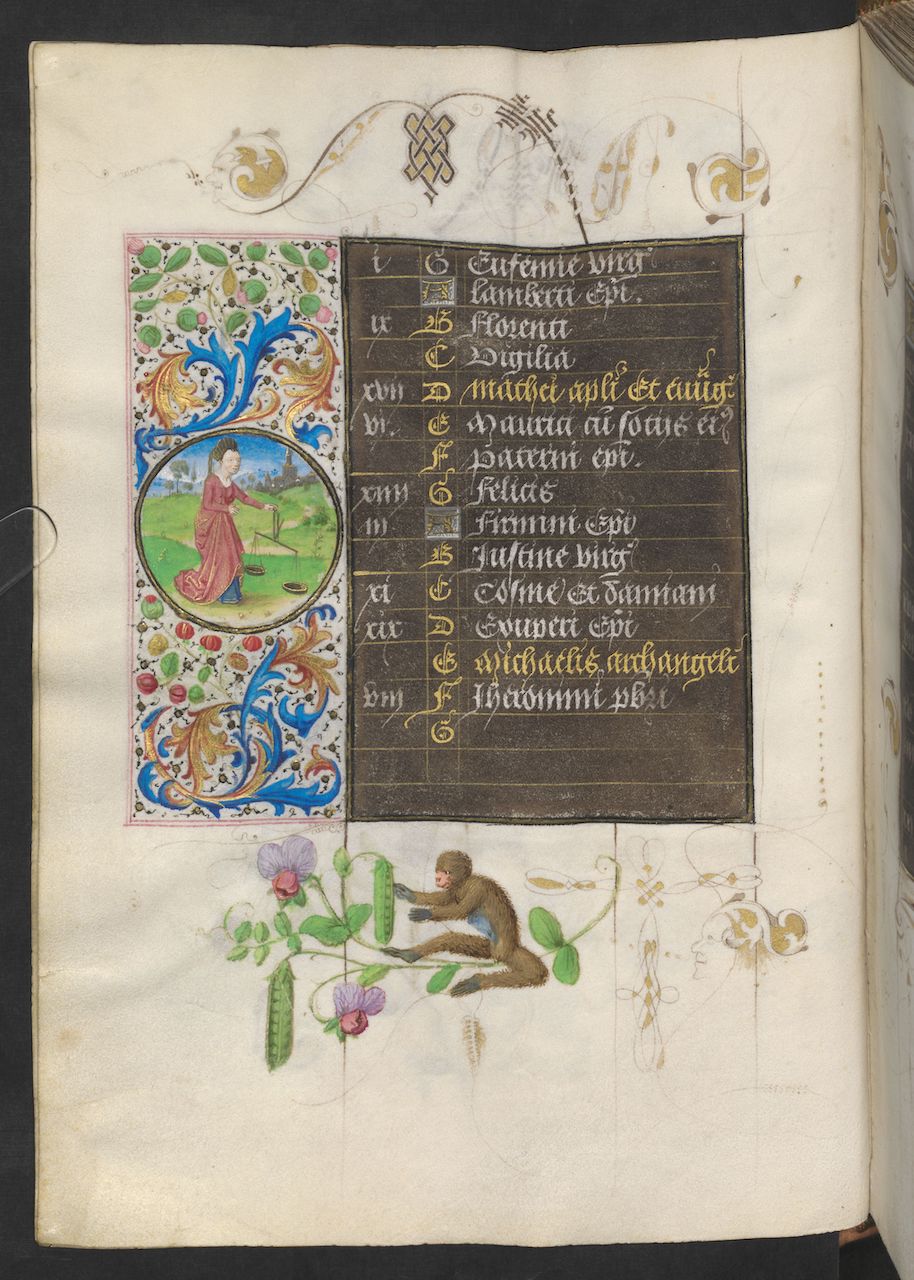 i G Eufemie virg
A lamberti epi.
ix B Florenti
C Vigilia
xvii D mathei apli Et euug
vi. E Mauritii cu sociis ei
F paterni epi.
G Felicis
xiiii
iii A Firmini Epi
B Justine virg
xi C Cosme Et damiani
xix D Exuperi Epi
E Michaelis archangeli
viii F Jheronimi pbri
G